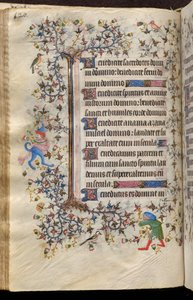 Benedicite sacerdotes domi
ni domino: benedicite serui do
mini domino
Benedicite spiritus et anime
iustorum domino: benedicite
sancti et humiles corde domino
Benedicite anania azaria
misael domino: laudate et su
per exaltate eum in secula
Benedicamus patrem et
filium cum sancto spiritu: lau
demus et superexaltemus eum
in secula
Benedictus es domine in